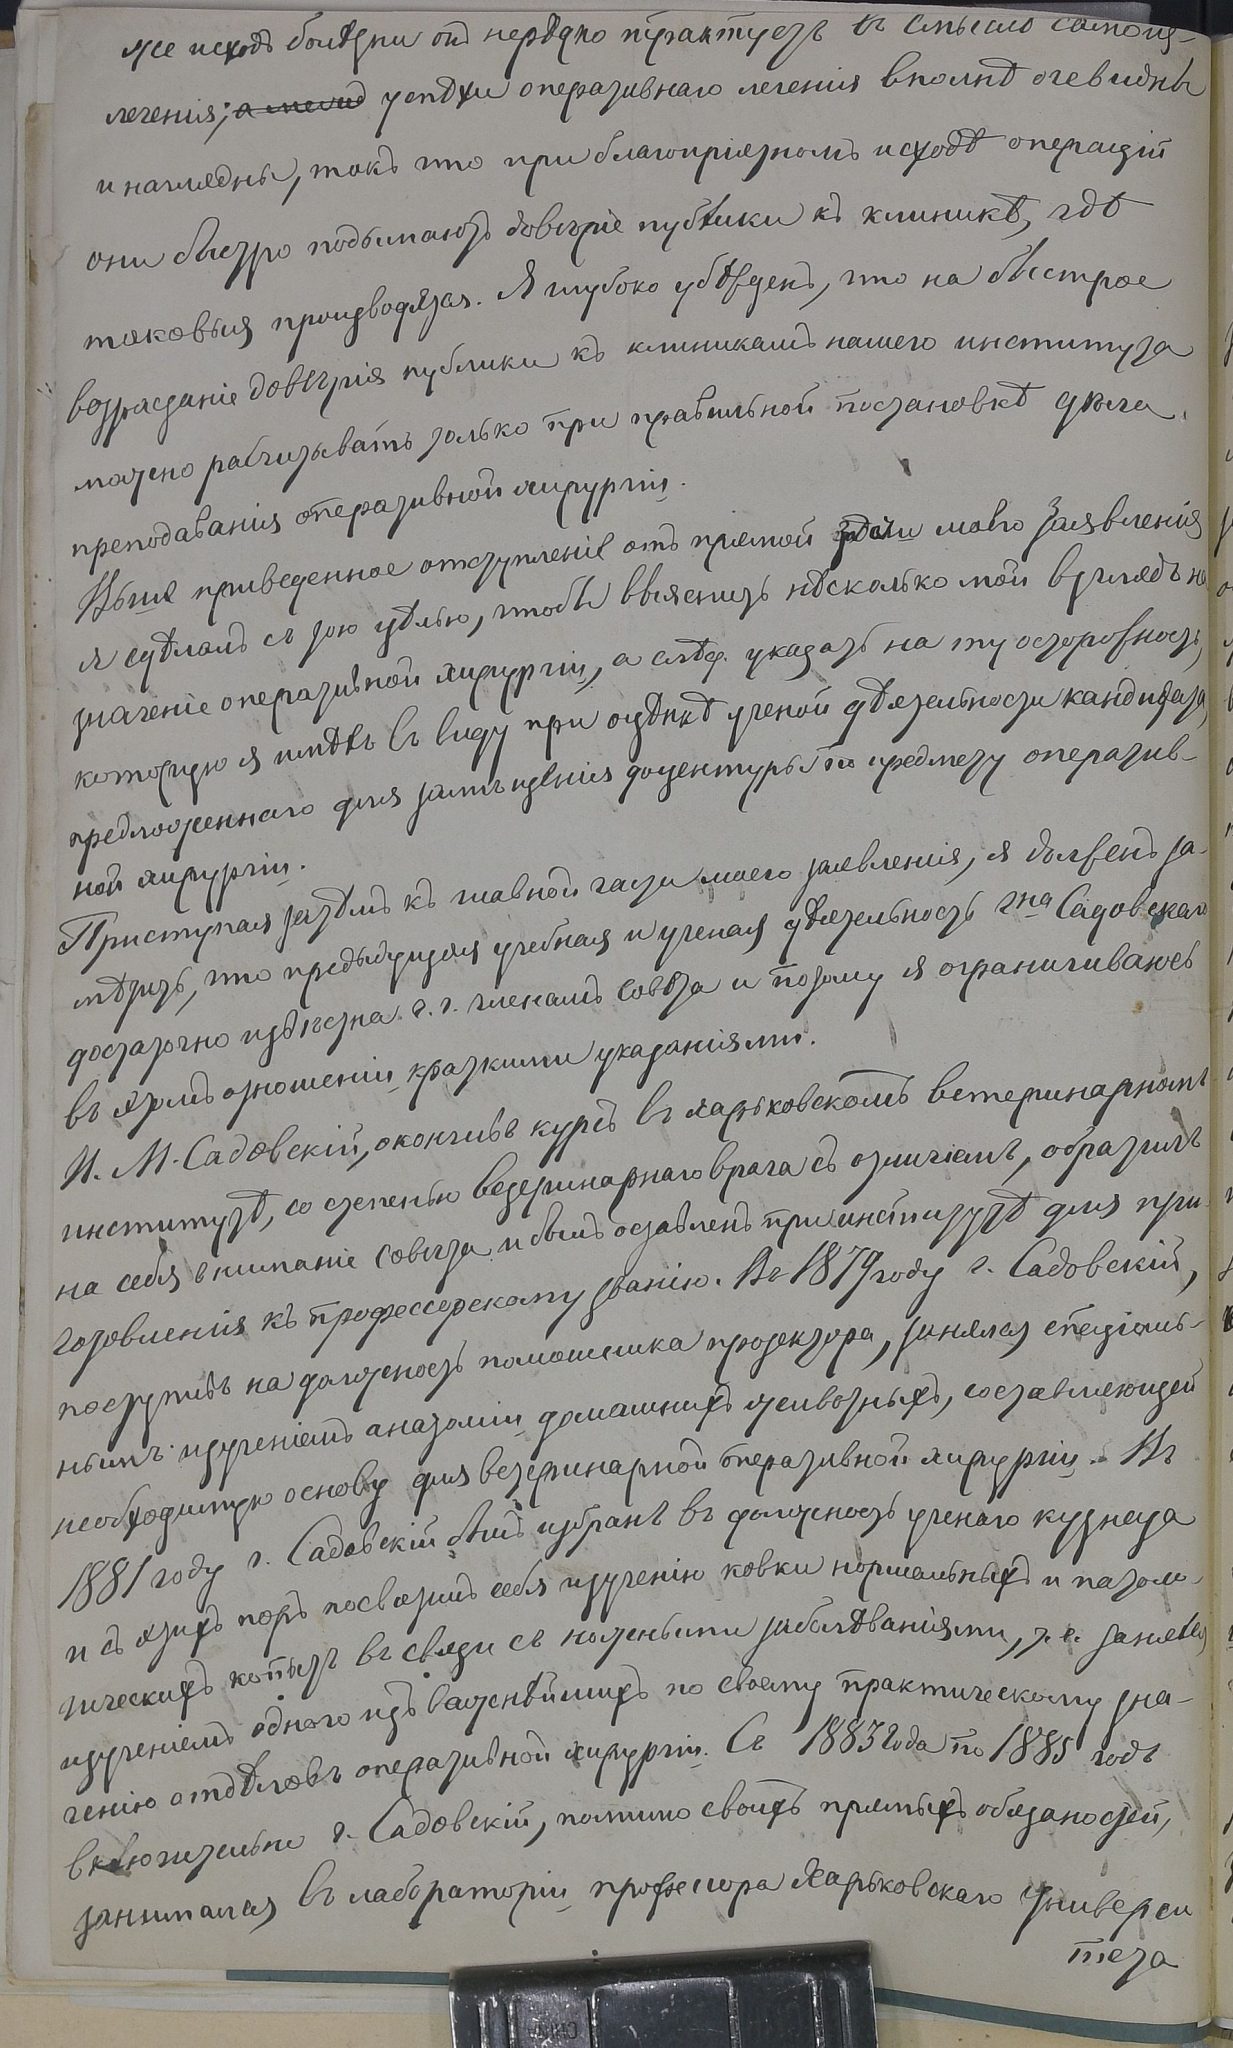 же исходъ болѣзни онъ нерѣдко трактуетъ въ смыслѣ самоиз-
леченія; успѣхи оперативнаго леченія вполнѣ очевидны
и наглядны, такъ что при благопріятномъ исходѣ операцій
они быстро подымаютъ довѣріе публики къ клиникѣ, гдѣ
таковыя производятся. Я глубоко убѣжденъ, что на быстрое
возрастаніе довѣрія публики къ клиникамъ нашего института
можно расчитывать только при правильной постановкѣ дѣла
преподаванія оперативной хирургіи.
Выше приведенное отступленіе отъ прямой цѣли моего заявленія
я сдѣлалъ съ тою цѣлью, чтобы выяснить нѣсколько мой взглядъ на
значеніе оперативной хирургіи, а слѣд. указать на ту осторожность,
которую я имѣлъ въ виду при оцѣнкѣ ученой дѣятельности кандидата,
предложеннаго для замѣщенія доцентуры по предмету оператив-
ной хирургіи.
Приступая затѣмъ къ главной части моего заявленія, я долженъ за-
мѣтить, что предыдущая учебная и ученая дѣятельность г-на Садовскаго
достаточно извѣстна г.г. членамъ совѣта и потому я ограничиваюсь
въ этомъ отношеніи краткими указаніями.
И. М. Садовскій, окончивъ курсъ въ харьковскомъ ветеринарномъ
институтѣ, со степенью ветеринарнаго врача съ отличіемъ, обратилъ
на себя вниманіе совѣта и былъ оставленъ при институтѣ для при-
готовленія къ профессорскому званію. Въ 1879 году г. Садовскій,
поступивъ на должность помощника прозектора, занялся спеціаль-
нымъ изученіемъ анатоміи домашнихъ животныхъ, составляющей
необходимую основу для ветеринарной оперативной хирургіи. Въ
1881 году г. Садовскій былъ избранъ въ должность ученаго кузнеца
и съ этихъ поръ посвятилъ себя изученію ковки нормальныхъ и патоло-
гическихъ копытъ въ связи съ ножными заболѣваніями, т. е. занялся
изученіемъ одного изъ важнѣйшихъ по своему практическому зна-
ченію отдѣловъ оперативной хирургіи. Съ 1883 года по 1885 годъ
включительно г. Садовскій, помимо своихъ прямыхъ обязаностей,
занимался въ лабораторіи професора Харьковскаго Универси
тета